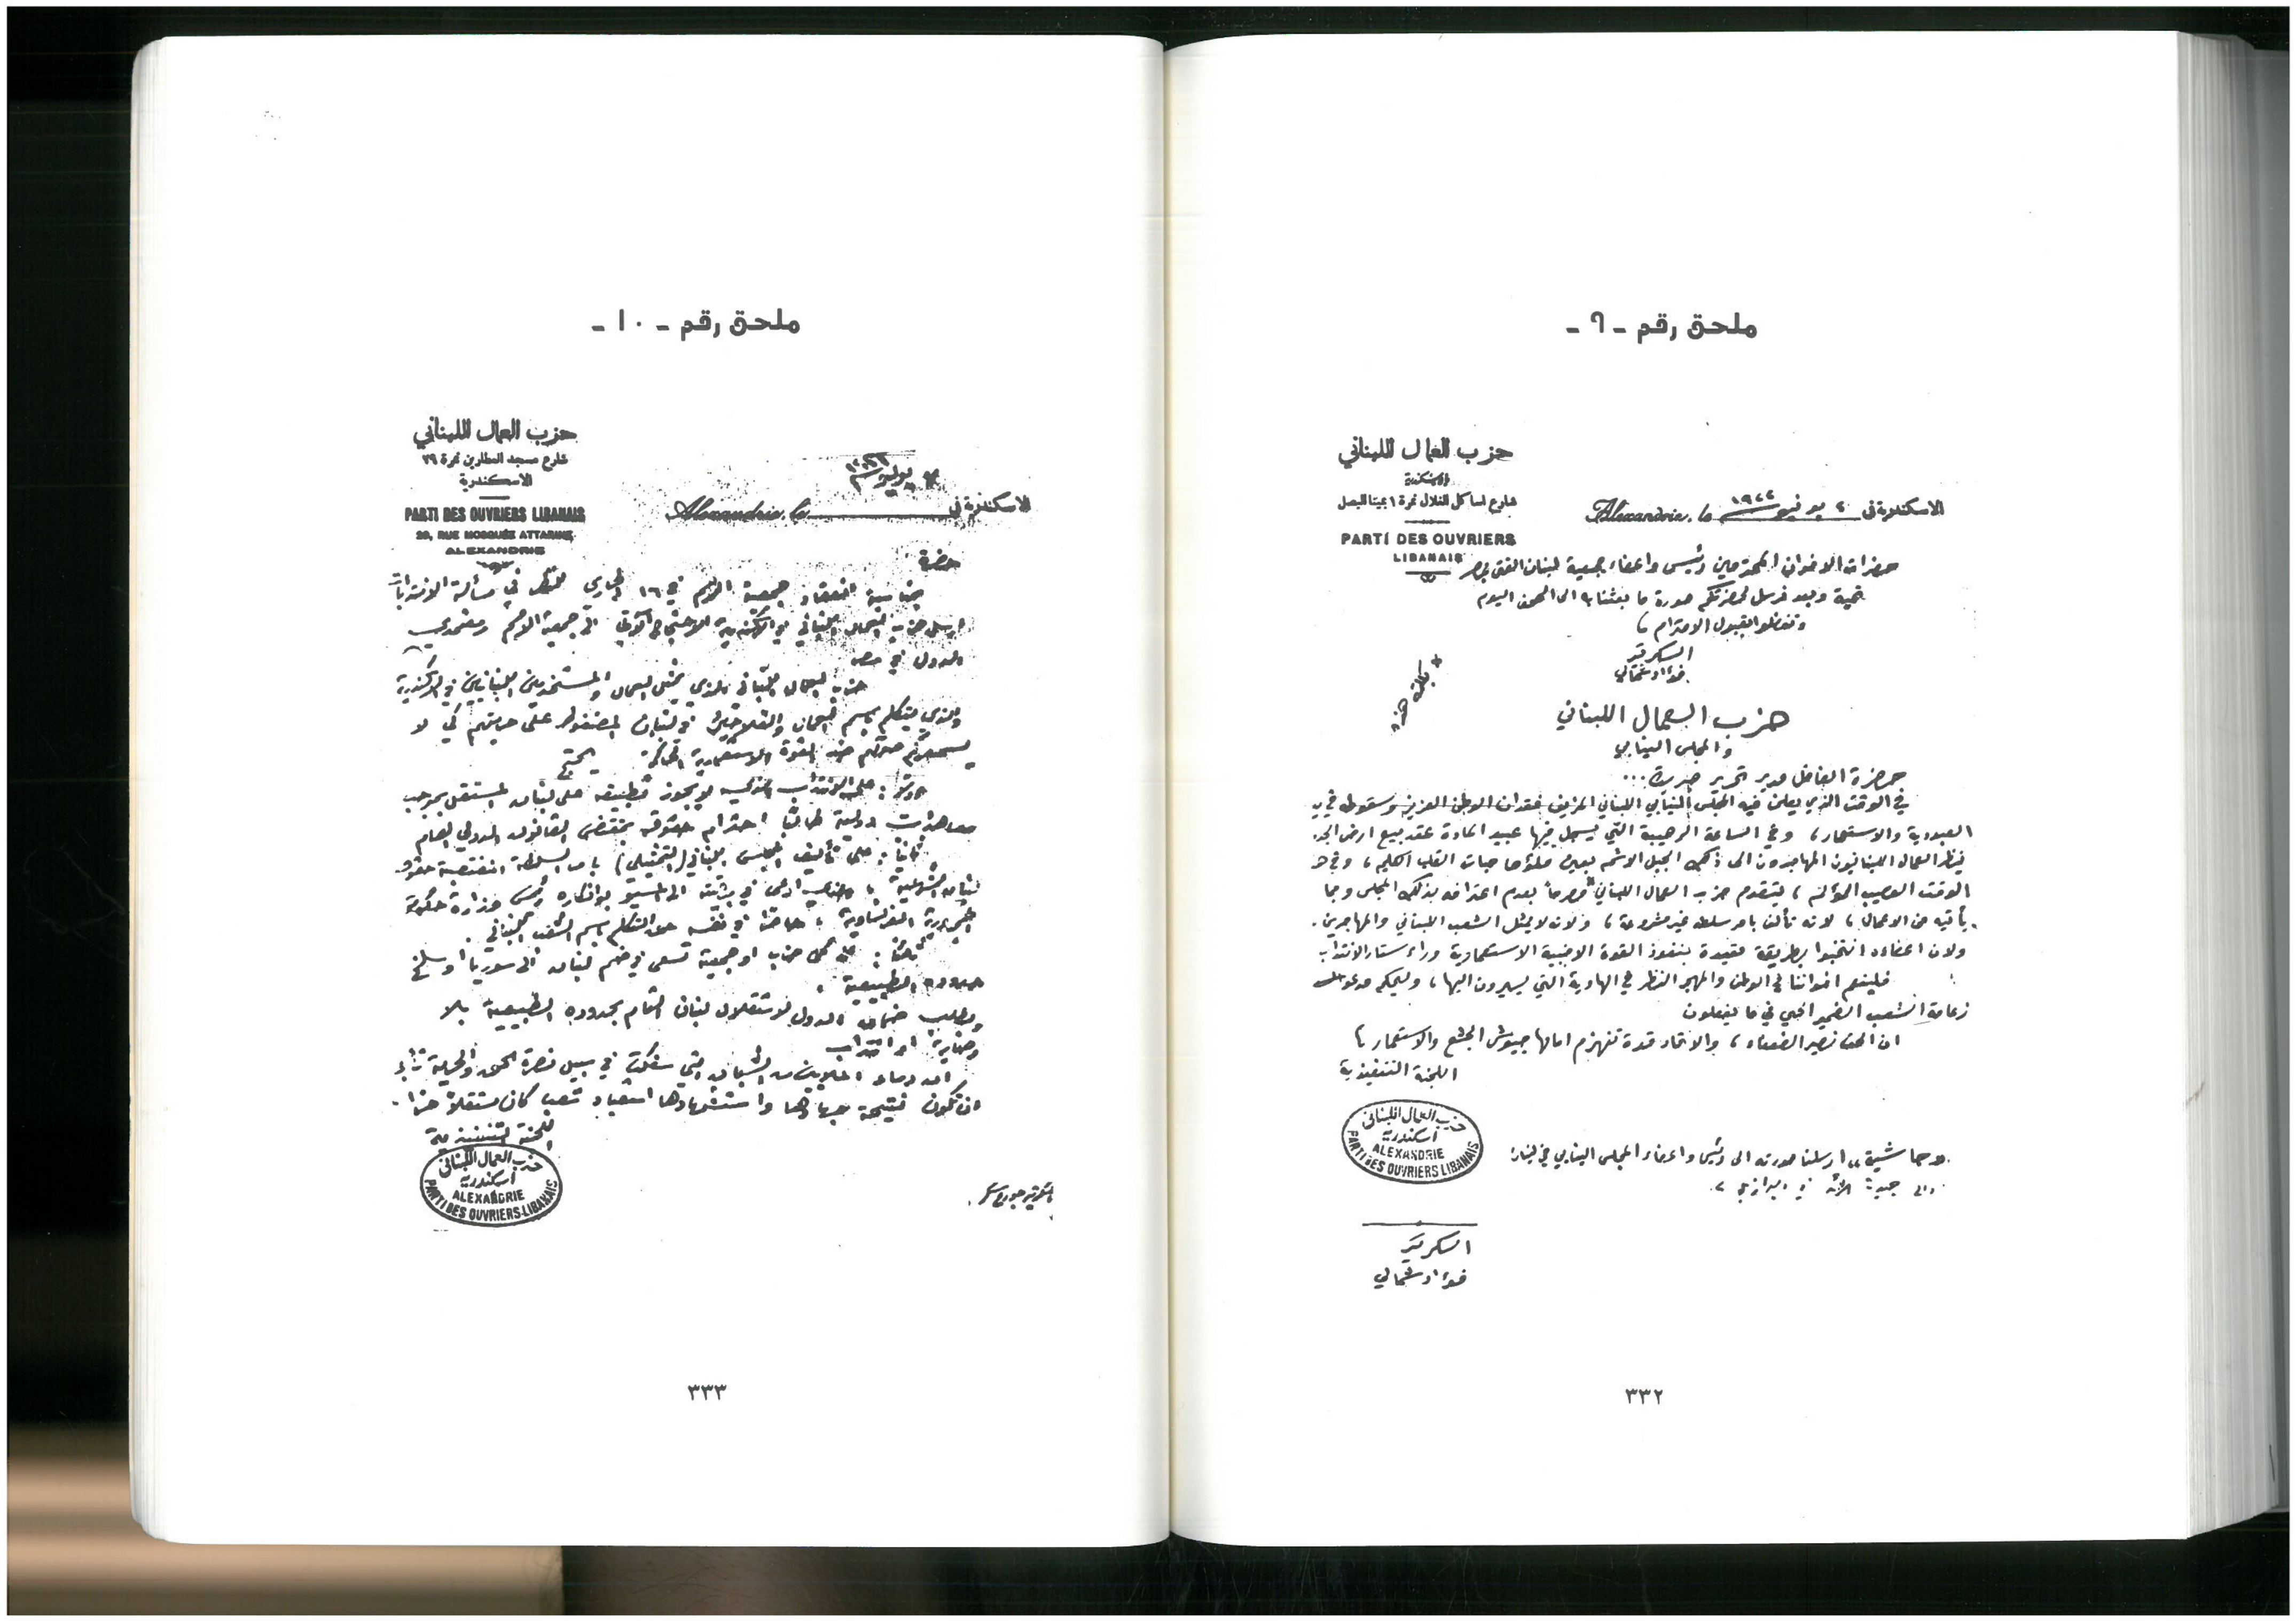 ملحق رقم - ٩ -
حزب العمال اللبناني
الاسكندرية
شارع لساكل التلال نمرة ١ بمينا البصل
PARTI DES OUVRIERS
LIBANAIS
الاسكندرية في ٢ يونيو سنة ١٩٢٢
Alexandrie, le
حضرات الاخوان المحترمين رئيس واعضاء جمعية لبنان الفتى بمصر
تحية وبعد نرسل لحضرتكم صورة ما بعثنا به الى الصحف اليوم
وتفضلوا بقبول الاحترام
السكرتير
فؤاد شمالي
حزب العمال اللبناني
والمجلس النيابي
حضرة الفاضل مدير تحرير جريدة ...
في الوقت الذي يعلن فيه المجلس النيابي اللبناني المزيف فقدان الوطن العزيز وسقوطه في
العبودية والاستعمار، وفي الساعة الرهيبة التي يسجل فيها عبيد المادة عقد بيع ارض
ينظر العمال اللبنانيون المهاجرون الى ذلك الجبل الاشم بعين ملؤها حبات القلب الكليم، وفي
الوقت العصيب المؤلم، يتقدم حزب العمال اللبناني مصرحاً بعدم اعترافه بذلك المجلس وبما
يأتيه من الاعمال، لانه تألف بامر سلطة غير مشروعة، ولانه لا يمثل الشعب اللبناني والمهاجرين.
ولان اعضاءه انتخبوا بطريقة مقيدة بنفوذ القوة الاجنبية الاستعمارية وراء ستار الانتداب
فلينعم اخواننا في الوطن والمهجر النظر في الهاوية التي يسيرون اليها، وليحكم مدعو
زعامة الشعب الضمير الحي في ما يفعلون
ان الحق نصير الضعفاء، والاتحاد قوة تنهزم امامها جيوش الجشع والاستعمار
اللجنة التنفيذية
حزب العمال اللبناني
اسكندرية
ALEXANDRIE
PARTI DES OUVRIERS LIBANAIS
حاشية، ارسلنا صورته الى رئيس واعضاء المجلس النيابي في لبنان
والى جريدة في البرازيل
السكرتير
فؤاد شمالي
٣٣٢
ملحق رقم - ١٠ -
حزب العمال اللبناني
شارع مسجد العطارين نمرة ٢٩
الاسكندرية
PARTI DES OUVRIERS LIBANAIS
29, RUE MOSQUÉE ATTARINE
ALEXANDRIE
الاسكندرية في يوليو سنة
Alexandrie, le
حضرة
بمناسبة انعقاد جمعية الامم في ١٦ الجاري للنظر في مسألة الانتدابات
ارسل حزب العمال اللبناني في الاسكندرية الاحتجاج الآتي الى جمعية الامم ومعتمدي
الدول في مصر
حزب العمال اللبناني الذي يمثل العمال والمستخدمين اللبنانيين في الاسكندرية
والذي يتكلم باسم العمال والفلاحين في لبنان المضغوط على حريتهم كي لا
صوتهم ضد القوة الاستعمارية الحاكمة يحتج
اولاً: على الانتداب الذي لا يجوز تطبيقه على لبنان المستقل بموجب
معاهدات دولية طالباً احترام حقوقه بمقتضى القانون الدولي العام
ثانياً: على تأليف المجلس اللبناني (التمثيلي) بامر السلطة المغتصبة حقوق
لبنان الشرعية، والذي ادعى في برقيته الى المسيو بوانكاره رئيس وزارة حكومة
الجمهورية الفرنساوية، في نفسه حق التكلم باسم الشعب اللبناني.
ثالثاً: على كل حزب او جمعية تسعى في ضم لبنان الى سوريا او سلخ
حدوده الطبيعية.
ويطلب ضمان الدول لاستقلال لبنان التام بحدوده الطبيعية بلا
وصاية او انتداب
ان دماء الملايين من الشبان التي سفكت في سبيل نصرة الحق والحرية تأبى
ان تكون نتيجة جهادها واستشهادها استعباد شعب كان مستقلاً حراً.
اللجنة التنفيذية
حزب العمال اللبناني
اسكندرية
ALEXANDRIE
PARTI DES OUVRIERS-LIBANAIS
٣٣٣